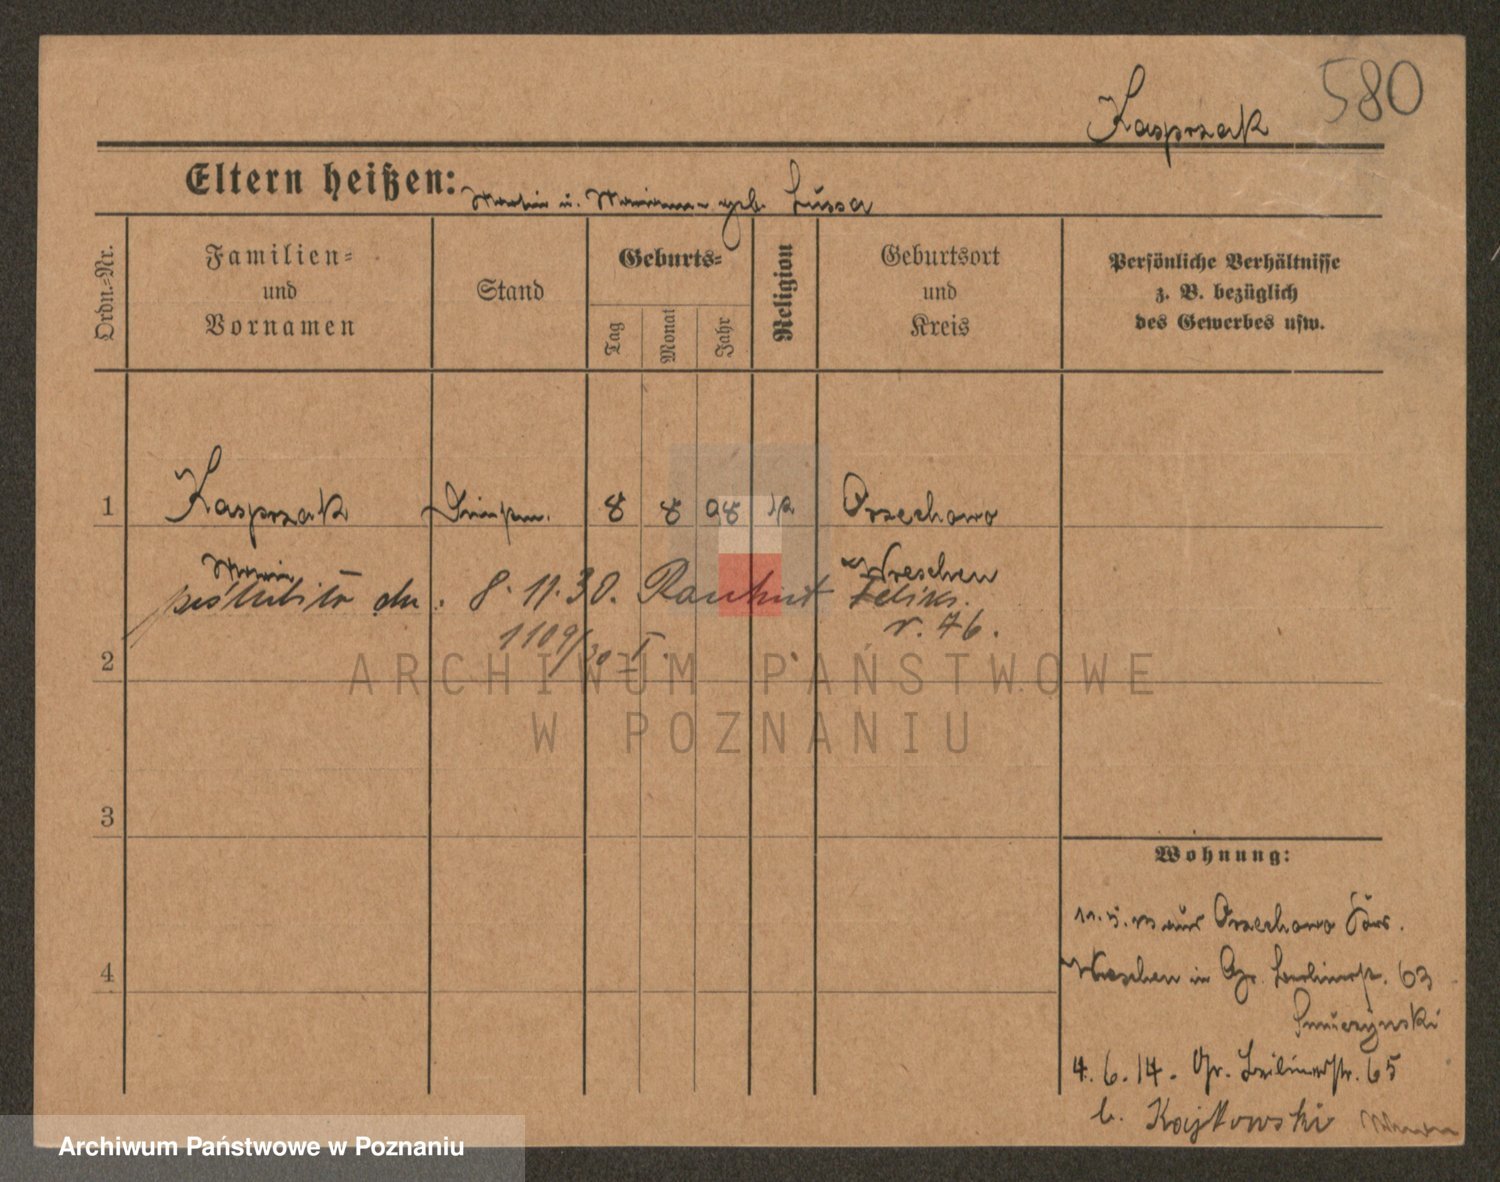 580
Kasprzak
Eltern heißen: Martin u. Marianna geb. Lussa
Ordn.-Nr.
Familien-
und
Vornamen
Stand
Geburts-
Tag
Monat
Jahr
Religion
Geburtsort
und
Kreis
Persönliche Verhältnisse
z. B. bezüglich
des Gewerbes usw.
1 Kasprzak 8 8 98 Orzechowo
Maria Wreschen
poślubiła dn. 8.11.30. Rauhut Feliks.
r. 76.
1109/30 I.
2
ARCHIWUM PAŃSTWOWE
W POZNANIU
3
Wohnung:
aus Orzechowo Krs.
4
Wreschen in Gr. Berlinerstr. 63
4.6.14. Gr. Berlinerstr. 65
b. Kajkowski
Archiwum Państwowe w Poznaniu